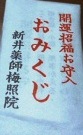 開運招福お守入
おみくじ
新井薬師梅照院